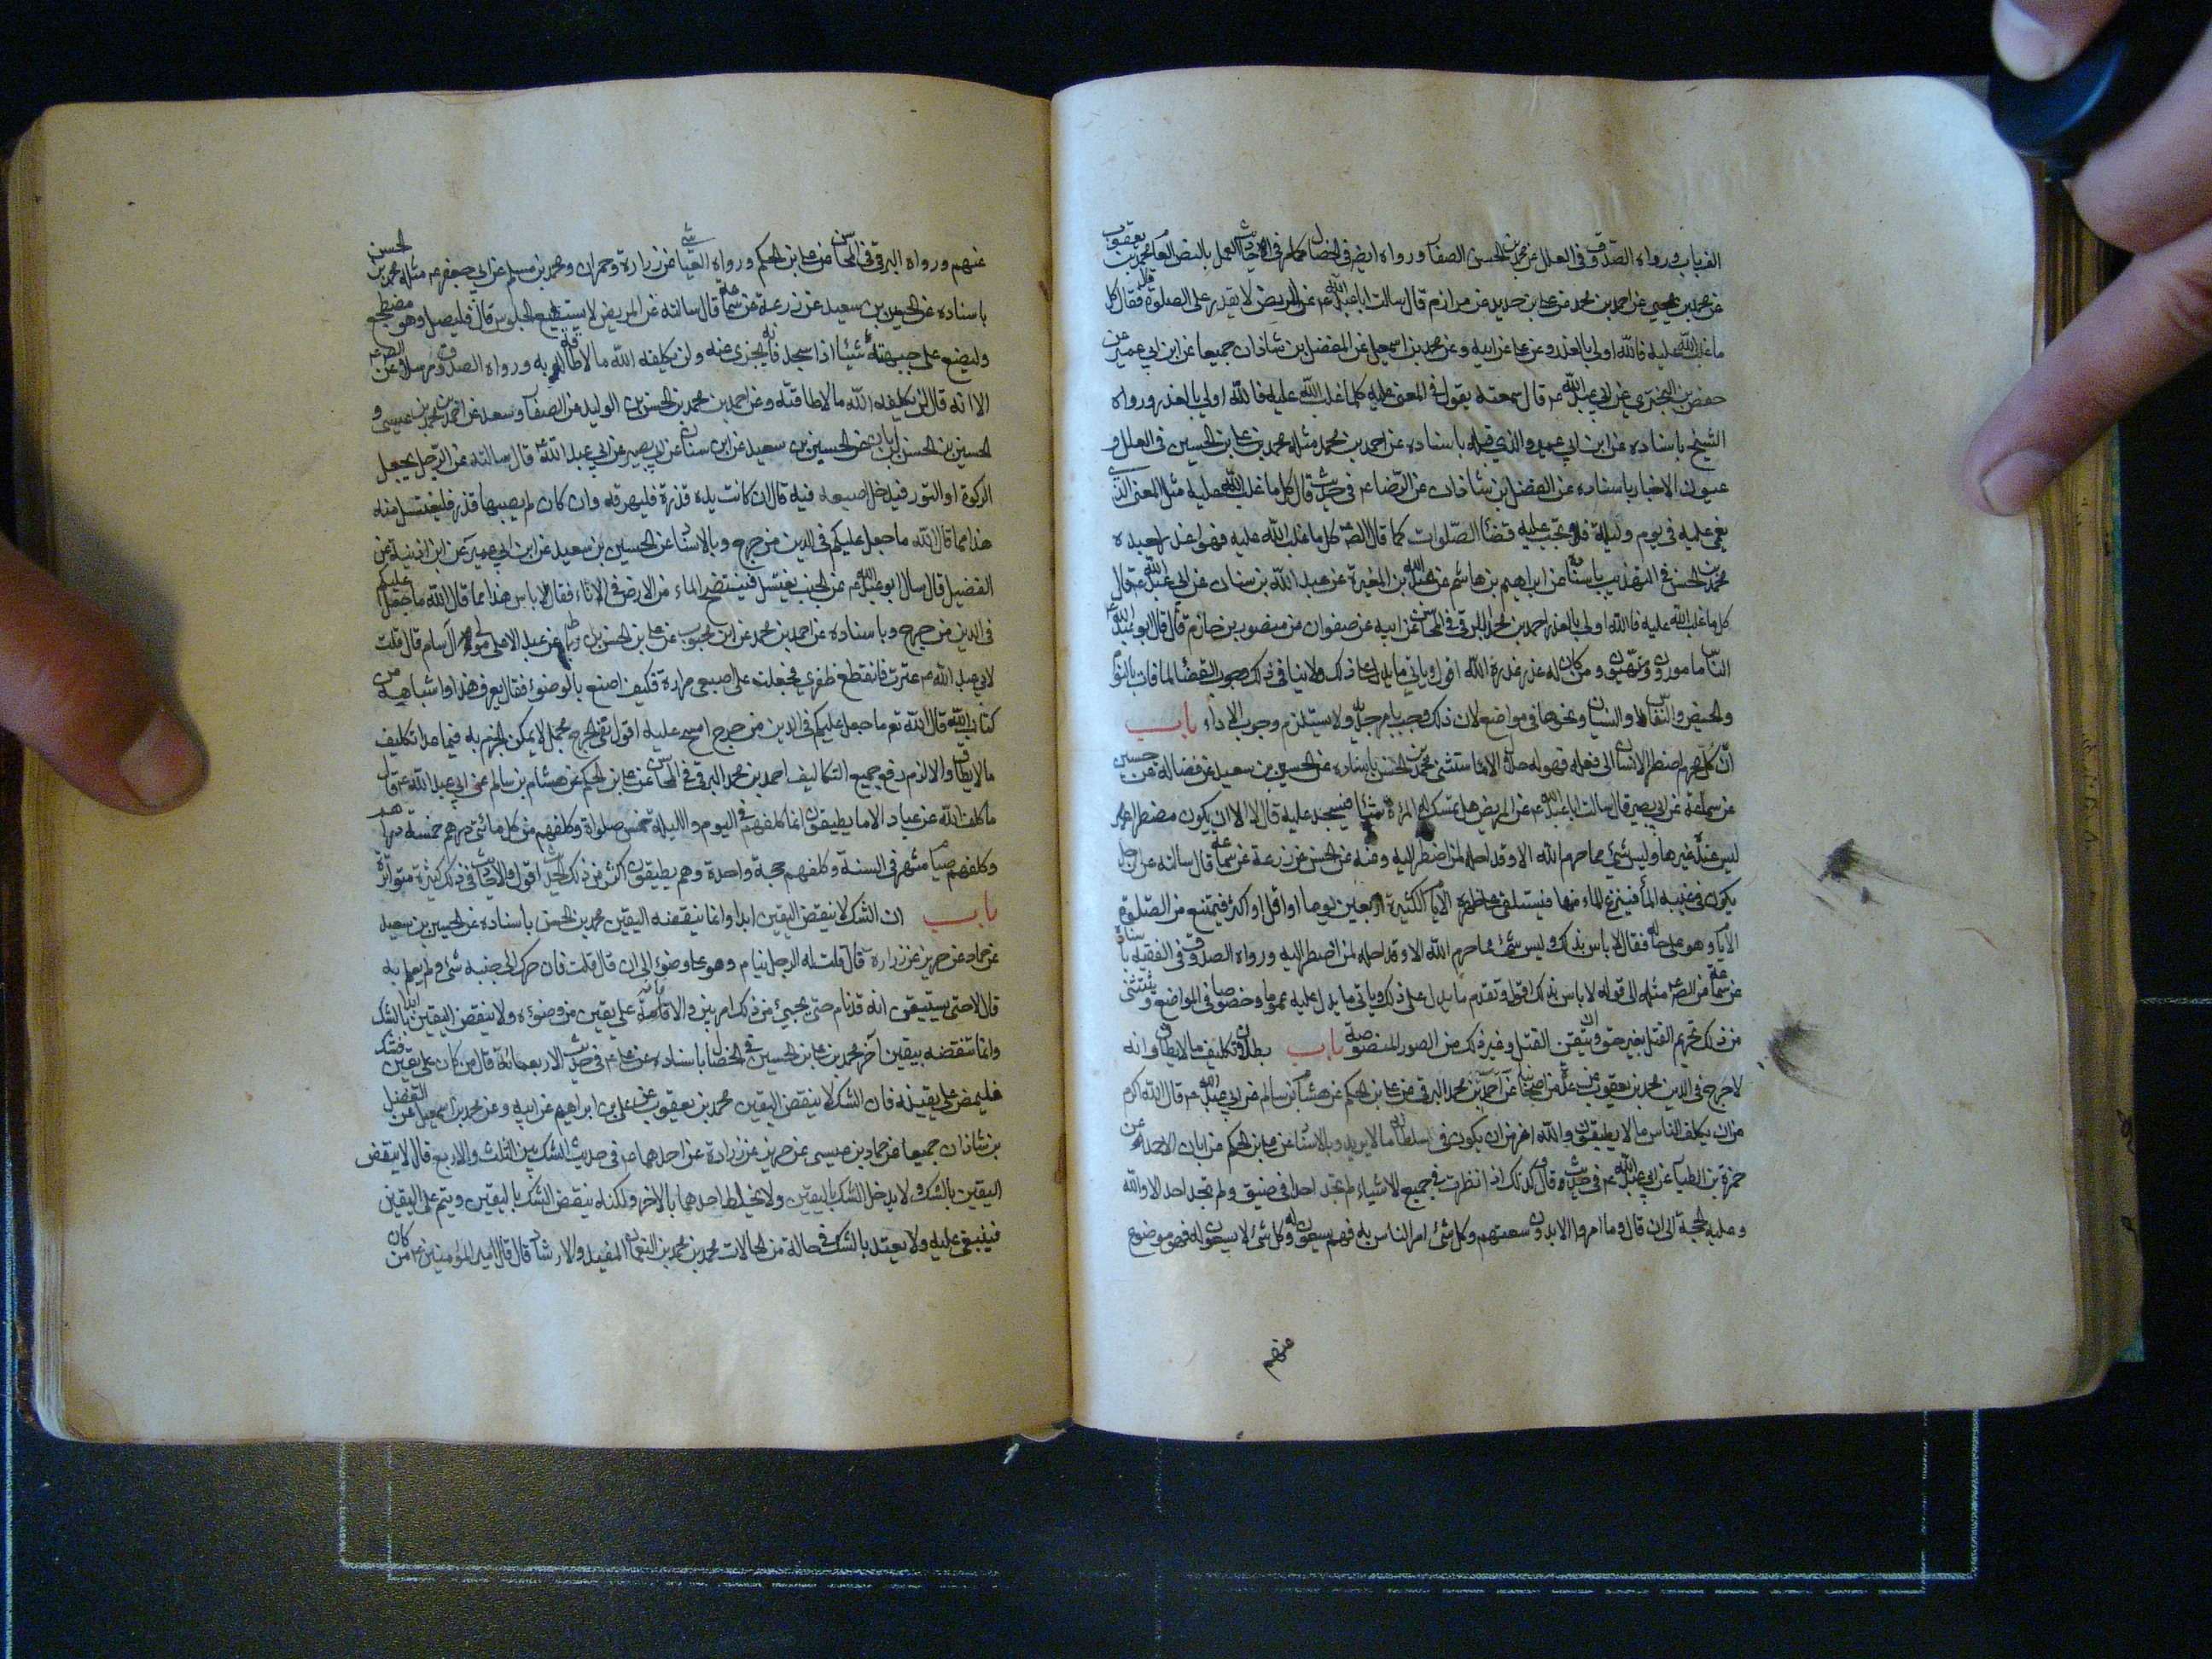 الغياب ورواه الصدوق في العلل عن محمد بن الحسن الصفار ورواه ايض في الخصال كما مر في احاديث العمل بالنص العام محمد بن يعقوب
عن محمد بن يحيى عن احمد بن محمد عن علي بن حديد عن مرازم قال سالت ابا عبد الله ع عن المريض لا يقدر على الصلوة قال فقال كل
ما غلب الله عليه فالله اولى بالعذر وعن علي عن ابيه وعن محمد بن اسمعيل عن الفضل بن شاذان جميعا عن ابن ابي عمير عن
حفص بن البختري عن ابي عبد الله ع قال سمعته يقول في المغمى عليه كلما غلب الله عليه فالله اولى بالعذر ورواه
الشيخ باسناده عن ابن ابي عمير والذي قبله باسناده عن احمد بن محمد مثله محمد بن علي بن الحسين في العلل و
عيون الاخبار باسناده عن الفضل بن شاذان عن الرضا ع في حديث قال كل ما غلب الله عليه مثل المغمى الذي
يغمى عليه في يوم وليلة فلا يجب عليه قضاء الصلوات كما قال الص كل ما غلب الله عليه فهو اعذر لعبده
محمد بن الحسن في التهذيب باسناده عن ابراهيم بن هاشم عن عبد الله بن المغيرة عن عبد الله بن سنان عن ابي عبد الله ع قال
كل ما غلب الله عليه فالله اولى بالعذر احمد بن محمد البرقي في المحاسن عن ابيه عن صفوان عن منصور بن حازم قال قال ابو عبد الله ع
الناس مامورون ومنهيون ومن كان له عذر عذره الله اقول وياتي ما يدل على ذلك ولا ينافي ذلك وجوب القضاء لما فات بالنوم
والحيض والنفاس والنسيان ونحوها في مواضع لان ذلك وجب بامر جديد ولا يستلزم وجوب الاداء باب
ان كل محرم اضطر الانسان الى فعله فهو له حلال الا ما استثنى محمد بن الحسن باسناده عن الحسين بن سعيد عن فضالة عن حسين
عن سماعة عن ابي بصير قال سالت ابا عبد الله ع عن المريض هل تمسك له المرءة شيئا فيسجد عليه قال لا الا ان يكون مضطرا
ليس عنده غيرها وليس شيء مما حرم الله الا وقد احله لمن اضطر اليه وعنه عن الحسن عن زرعة عن سماعة قال سالته عن الرجل
يكون في عينيه الماء فينتزع الماء منها فيستلقي على ظهره الايام الكثيرة اربعين يوما او اقل او اكثر فيمتنع من الصلوة
الايام وهو على حاله فقال لا باس بذلك وليس شيء مما حرم الله الا وقد احله لمن اضطر اليه ورواه الصدوق في الفقيه باسناده
عن سماعة عن الص مثله الى قوله لا باس بذلك اقول وتقدم ما يدل على ذلك وياتي ما يدل عليه عموما وخصوصا في المواضع ويستثنى
من ذلك تحريم القتل بغير حق وان تيقن القتل وغير ذلك من الصور المنصوصة باب بطلان تكليف ما لا يطاق وانه
لا حرج في الدين محمد بن يعقوب عن عدة من اصحابنا عن احمد بن محمد البرقي عن علي بن الحكم عن هشام بن سالم عن ابي عبد الله ع قال الله اكرم
من ان يكلف الناس ما لا يطيقون والله اعز من ان يكون في سلطانه ما لا يريد وبالاسناد عن علي بن الحكم عن ابان الاحمر عن
حمزة بن الطيار عن ابي عبد الله ع في حديث وقال وكذلك اذا نظرت في جميع الاشياء لم تجد احدا في ضيق ولم تجد احد الا ولله
وعليه الحجة الى ان قال وما امروا الا بدون سعتهم وكل شيء امر الناس به فهم يسعون له وكل شيء لا يسعون له فهو موضوع
منهم
عنهم ورواه البرقي في المحاسن عن علي بن الحكم ورواه العياشي عن زرارة وحمران ومحمد بن مسلم عن ابي جعفر ع مثله محمد بن الحسن
باسناده عن الحسين بن سعيد عن زرعة عن سماعة قال سالته عن المريض لا يستطيع الجلوس قال فليصل وهو مضطجع
وليضع على جبهته شيئا اذا سجد فانه يجزي عنه ولن يكلفه الله ما لا طاقة له به ورواه الصدوق مرسلا عن الص ع
الا انه قال لن يكلفه الله ما لا طاقته وعن احمد بن محمد بن الحسن بن الوليد عن الصفار وسعد عن احمد بن محمد بن عيسى و
الحسين بن الحسن بن ابان عن الحسين بن سعيد عن ابن سنان عن ابي بصير عن ابي عبد الله ع قال سالته عن الرجل يجعل
الركوة او التور فيدخل اصبعه فيه قال ان كانت يده قذرة فليهرقه وان كان لم يصبها قذر فليغتسل منه
هذا مما قال الله ما جعل عليكم في الدين من حرج وبالاسناد عن الحسين بن سعيد عن ابن ابي عمير عن ابن اذينة عن
الفضيل قال سال ابو عبد الله ع عن الجنب يغتسل فينتضح الماء من الارض في الاناء فقال لا باس هذا مما قال الله ما جعل عليكم
في الدين من حرج وباسناده عن احمد بن محمد عن ابن محبوب عن علي بن الحسن بن رباط عن عبد الاعلى مولى آل سام قال قلت
لابي عبد الله ع عثرت فانقطع ظفري فجعلت على اصبعي مرارة فكيف اصنع بالوضوء فقال يعرف هذا واشباهه من
كتاب الله قال الله تع ما جعل عليكم في الدين من حرج امسح عليه اقول نفي الحرج مجمل لا يمكن الجزم به فيما عدا تكليف
ما لا يطاق والا لزم رفع جميع التكاليف احمد بن محمد البرقي في المحاسن عن علي بن الحكم عن هشام بن سالم عن ابي عبد الله ع قال
ما كلف الله عن عباد الا ما يطيقون انما كلفهم في اليوم والليلة خمس صلوات وكلفهم من كل مائتي درهم خمسة دراهم
وكلفهم صيام شهر في السنة وكلفهم حجة واحدة وهم يطيقون اكثر من ذلك الحديث اقول والاحاديث في ذلك كثيرة متواترة
باب ان الشك لا ينقض اليقين ابدا وانما ينقضه اليقين محمد بن الحسن باسناده عن الحسين بن سعيد
عن حماد عن حريز عن زرارة قال قلت له الرجل ينام وهو على وضوء الى ان قال قلت فان حرك الى جنبه شيء ولم يعلم به
قال لا حتى يستيقن انه قد نام حتى يجيئ من ذلك امر بين والا فانه على يقين من وضوئه ولا ينقض اليقين ابدا بالشك
وانما تنقضه بيقين آخر محمد بن علي بن الحسين في الخصال باسناده عن علي ع في حديث الاربعمائة قال من كان على يقين فشك
فليمض على يقينه فان الشك لا ينقض اليقين محمد بن يعقوب عن علي بن ابراهيم عن ابيه وعن محمد بن اسمعيل عن الفضل
بن شاذان جميعا عن حماد بن عيسى عن حريز عن زرارة عن احدهما ع في حديث الشك بين الثلث والاربع قال لا ينقض
اليقين بالشك ولا يدخل الشك باليقين ولا يخلط احدهما بالاخر ولكنه ينقض الشك باليقين ويتم على اليقين
فيبني عليه ولا يعتد بالشك في حالة من الحالات محمد بن محمد بن النعمان المفيد والارشاد قال قال امير المؤمنين ع من كان